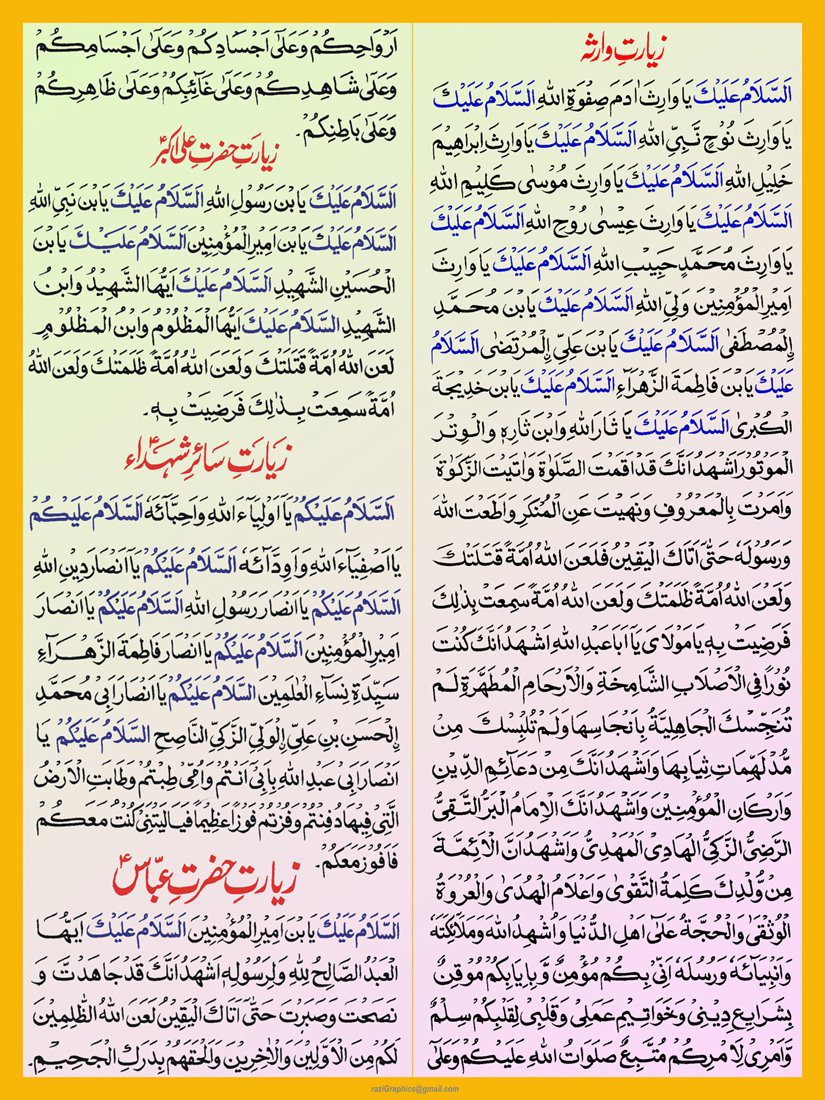 زیارتِ وارثہ
اَلسَّلَامُ عَلَيْكَ يَا وَارِثَ اٰدَمَ صِفْوَةِ اللهِ اَلسَّلَامُ عَلَيْكَ
يَا وَارِثَ نُوْحٍ نَّبِيِّ اللهِ اَلسَّلَامُ عَلَيْكَ يَا وَارِثَ اِبْرَاهِيْمَ
خَلِيْلِ اللهِ اَلسَّلَامُ عَلَيْكَ يَا وَارِثَ مُوْسٰى كَلِيْمِ اللهِ
اَلسَّلَامُ عَلَيْكَ يَا وَارِثَ عِيْسٰى رُوْحِ اللهِ اَلسَّلَامُ عَلَيْكَ
يَا وَارِثَ مُحَمَّدٍ حَبِيْبِ اللهِ اَلسَّلَامُ عَلَيْكَ يَا وَارِثَ
اَمِيْرِ الْمُؤْمِنِيْنَ وَلِيِّ اللهِ اَلسَّلَامُ عَلَيْكَ يَابْنَ مُحَمَّدِ
اِلْمُصْطَفٰى اَلسَّلَامُ عَلَيْكَ يَا بْنَ عَلِيِّ اِلْمُرْتَضٰى اَلسَّلَامُ
عَلَيْكَ يَابْنَ فَاطِمَةَ الزَّهْرَاءِ اَلسَّلَامُ عَلَيْكَ يَابْنَ خَدِيْجَةَ
الْكُبْرٰى اَلسَّلَامُ عَلَيْكَ يَا ثَارَ اللهِ وَابْنَ ثَارِهٖ وَالْوِتْرَ
الْمَوْتُوْرَ اَشْهَدُ اَنَّكَ قَدْ اَقَمْتَ الصَّلٰوةَ وَاٰتَيْتَ الزَّكٰوةَ
وَاَمَرْتَ بِالْمَعْرُوْفِ وَنَهَيْتَ عَنِ الْمُنْكَرِ وَاَطَعْتَ اللهَ
وَرَسُوْلَهٗ حَتّٰى اَتَاكَ الْيَقِيْنُ فَلَعَنَ اللهُ اُمَّةً قَتَلَتْكَ
وَلَعَنَ اللهُ اُمَّةً ظَلَمَتْكَ وَلَعَنَ اللهُ اُمَّةً سَمِعَتْ بِذٰلِكَ
فَرَضِيَتْ بِهٖ يَا مَوْلَاىَ يَا اَبَا عَبْدِ اللهِ اَشْهَدُ اَنَّكَ كُنْتَ
نُوْرًا فِي الْاَصْلَابِ الشَّامِخَةِ وَالْاَرْحَامِ الْمُطَهَّرَةِ لَمْ
تُنَجِّسْكَ الْجَاهِلِيَّةُ بِاَنْجَاسِهَا وَلَمْ تُلْبِسْكَ مِنْ
مُّدْلَهِمَّاتِ ثِيَابِهَا وَاَشْهَدُ اَنَّكَ مِنْ دَعَآئِمِ الدِّيْنِ
وَاَرْكَانِ الْمُؤْمِنِيْنَ وَاَشْهَدُ اَنَّكَ الْاِمَامُ الْبَرُّ التَّقِيُّ
الرَّضِيُّ الزَّكِيُّ الْهَادِي الْمَهْدِيُّ وَاَشْهَدُ اَنَّ الْاَئِمَّةَ
مِنْ وُّلْدِكَ كَلِمَةُ التَّقْوٰى وَاَعْلَامُ الْهُدٰى وَالْعُرْوَةُ
الْوُثْقٰى وَالْحُجَّةُ عَلٰى اَهْلِ الدُّنْيَا وَاُشْهِدُ اللهَ وَمَلٰٓئِكَتَهٗ
وَاَنْبِيَائَهٗ وَرُسُلَهٗ اَنِّيْ بِكُمْ مُؤْمِنٌ وَّبِاِيَابِكُمْ مُوْقِنٌ
بِشَرَايِعِ دِيْنِيْ وَخَوَاتِيْمِ عَمَلِيْ وَقَلْبِيْ لِقَلْبِكُمْ سِلْمٌ
وَّاَمْرِيْ لِاَمْرِكُمْ مُتَّبِعٌ صَلَوَاتُ اللهِ عَلَيْكُمْ وَعَلٰى
اَرْوَاحِكُمْ وَعَلٰى اَجْسَادِكُمْ وَعَلٰى اَجْسَامِكُمْ
وَعَلٰى شَاهِدِكُمْ وَعَلٰى غَآئِبِكُمْ وَعَلٰى ظَاهِرِكُمْ
وَعَلٰى بَاطِنِكُمْ۔
زیارتِ حضرتِ علی اکبرؑ
اَلسَّلَامُ عَلَيْكَ يَابْنَ رَسُوْلِ اللهِ اَلسَّلَامُ عَلَيْكَ يَابْنَ نَبِيِّ اللهِ
اَلسَّلَامُ عَلَيْكَ يَابْنَ اَمِيْرِ الْمُؤْمِنِيْنَ اَلسَّلَامُ عَلَيْكَ يَابْنَ
الْحُسَيْنِ الشَّهِيْدِ اَلسَّلَامُ عَلَيْكَ اَيُّهَا الشَّهِيْدُ وَابْنُ
الشَّهِيْدِ اَلسَّلَامُ عَلَيْكَ اَيُّهَا الْمَظْلُوْمُ وَابْنُ الْمَظْلُوْمِ
لَعَنَ اللهُ اُمَّةً قَتَلَتْكَ وَلَعَنَ اللهُ اُمَّةً ظَلَمَتْكَ وَلَعَنَ اللهُ
اُمَّةً سَمِعَتْ بِذٰلِكَ فَرَضِيَتْ بِهٖ۔
زیارتِ سائرِ شہداء
اَلسَّلَامُ عَلَيْكُمْ يَآ اَوْلِيَآءَ اللهِ وَاَحِبَّائَهٗ اَلسَّلَامُ عَلَيْكُمْ
يَا اَصْفِيَآءَ اللهِ وَاَوِدَّآئَهٗ اَلسَّلَامُ عَلَيْكُمْ يَا اَنْصَارَ دِيْنِ اللهِ
اَلسَّلَامُ عَلَيْكُمْ يَا اَنْصَارَ رَسُوْلِ اللهِ اَلسَّلَامُ عَلَيْكُمْ يَا اَنْصَارَ
اَمِيْرِ الْمُؤْمِنِيْنَ اَلسَّلَامُ عَلَيْكُمْ يَا اَنْصَارَ فَاطِمَةَ الزَّهْرَآءِ
سَيِّدَةِ نِسَآءِ الْعٰلَمِيْنَ اَلسَّلَامُ عَلَيْكُمْ يَا اَنْصَارَ اَبِيْ مُحَمَّدِ
اِلْحَسَنِ بْنِ عَلِيِّ اِلْوَلِيِّ الزَّكِيِّ النَّاصِحِ اَلسَّلَامُ عَلَيْكُمْ يَا
اَنْصَارَ اَبِيْ عَبْدِ اللهِ بِاَبِيْ اَنْتُمْ وَاُمِّيْ طِبْتُمْ وَطَابَتِ الْاَرْضُ
الَّتِيْ فِيْهَا دُفِنْتُمْ وَفُزْتُمْ فَوْزًا عَظِيْمًا فَيَا لَيْتَنِيْ كُنْتُ مَعَكُمْ
فَاَفُوْزَ مَعَكُمْ۔
زیارتِ حضرتِ عبّاسؑ
اَلسَّلَامُ عَلَيْكَ يَابْنَ اَمِيْرِ الْمُؤْمِنِيْنَ اَلسَّلَامُ عَلَيْكَ اَيُّهَا
الْعَبْدُ الصَّالِحُ لِلّٰهِ وَلِرَسُوْلِهٖ اَشْهَدُ اَنَّكَ قَدْ جَاهَدْتَّ وَ
نَصَحْتَ وَصَبَرْتَ حَتّٰى اَتَاكَ الْيَقِيْنُ لَعَنَ اللهُ الظّٰلِمِيْنَ
لَكُمْ مِنَ الْاَوَّلِيْنَ وَالْاٰخِرِيْنَ وَاَلْحَقَهُمْ بِدَرْكِ الْجَحِيْمِ۔
raziGraphics@gmail.com